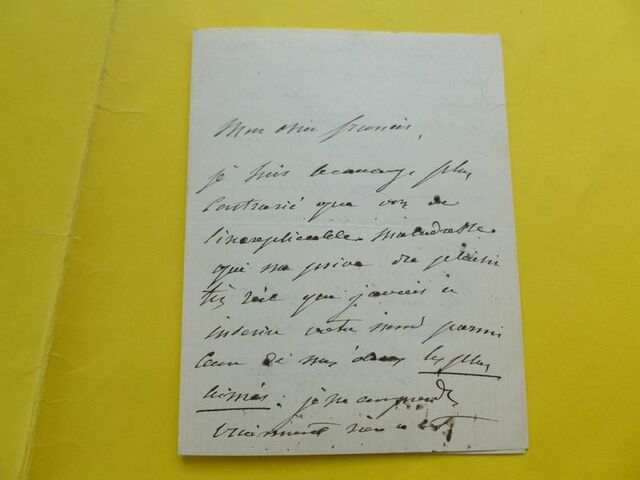 Mon cher francis,
je suis beaucoup plus
contrarié que vous de
l'inexplicable maladresse
qui me prive du plaisir
très réel que j'avais à
inscrire votre nom parmi
ceux de mes les plus
aimés : je ne comprends
vraiment rien a